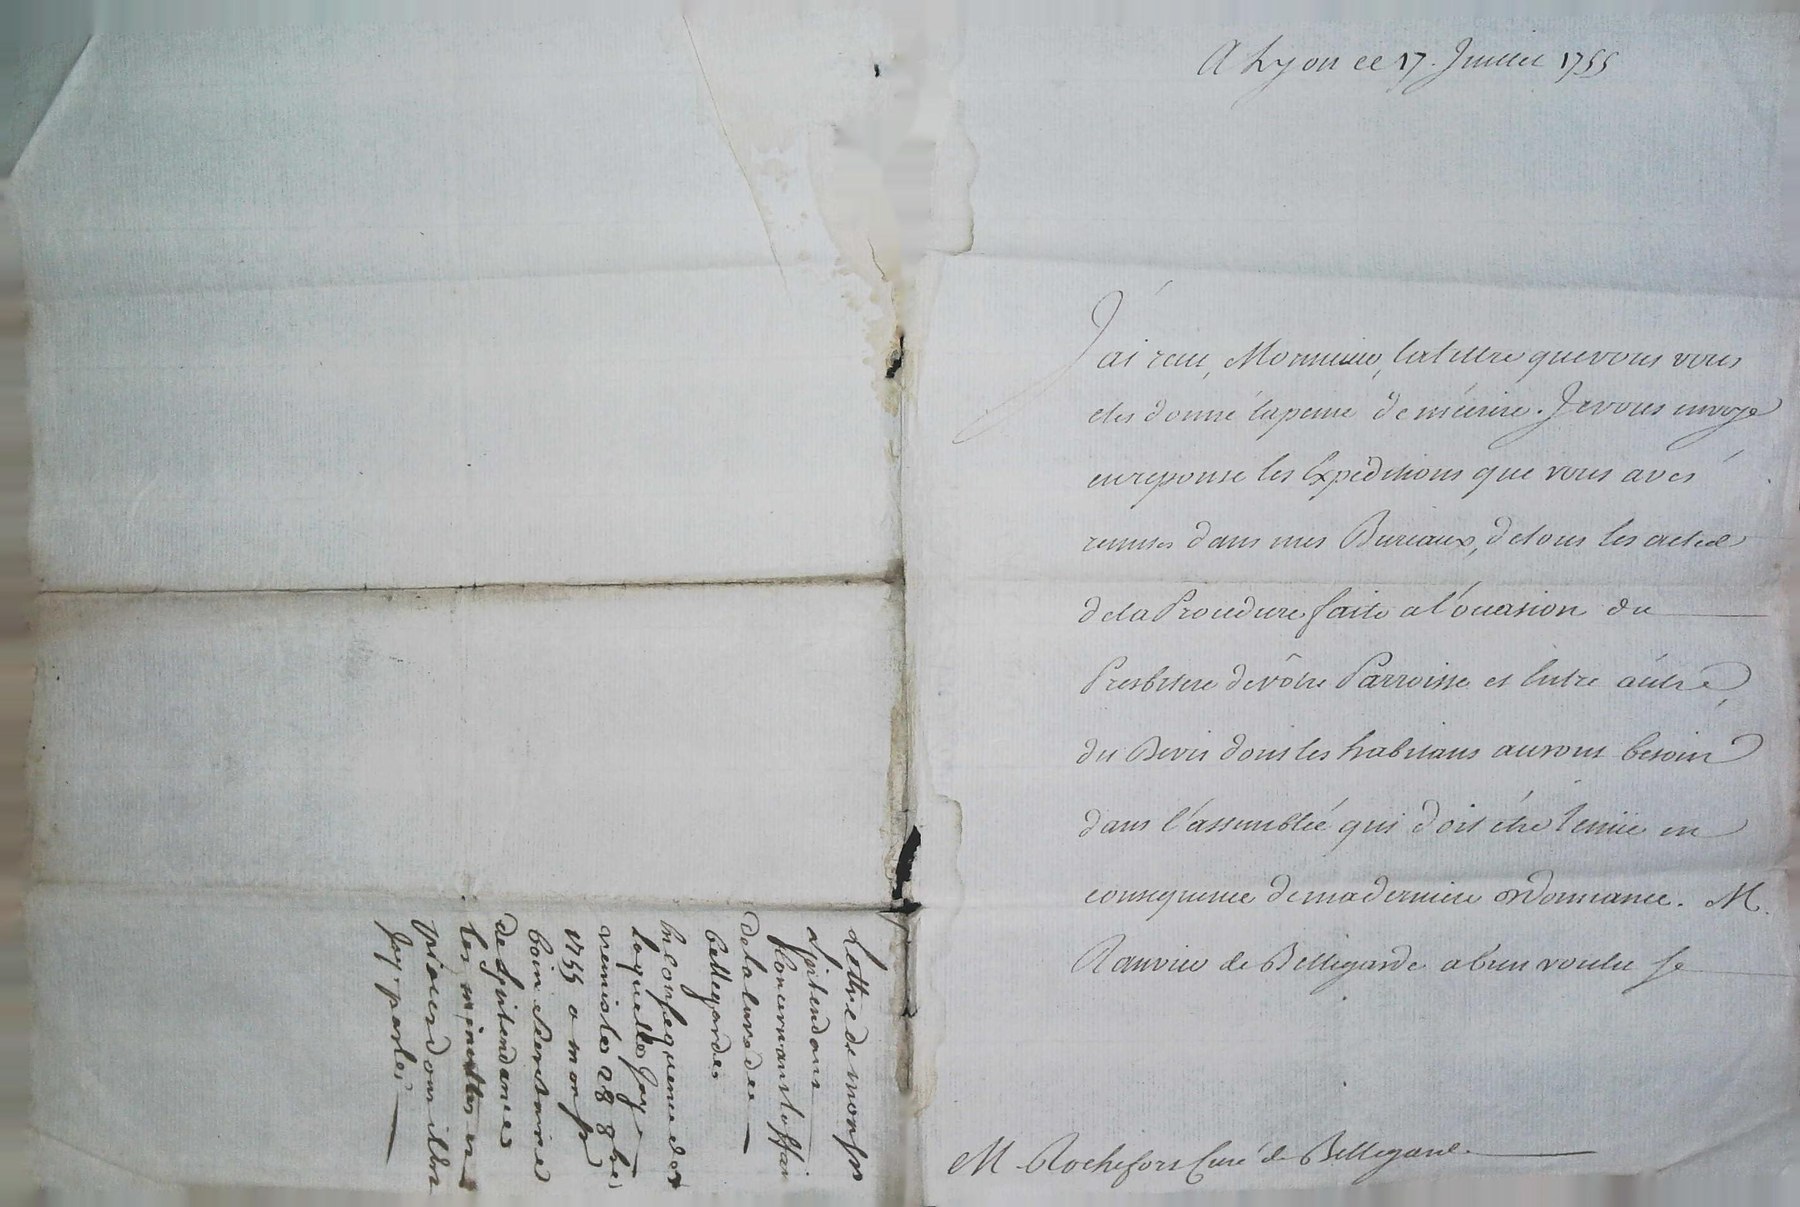 A Lyon ce 17. Juillet 1755
J'ai reçu, Monsieur, la lettre que vous vous
etes donné la peine de m'écrire. Je vous envoye
en reponse les Expeditions que vous avés
remises dans mes Bureaux, de tous les actes
de la Procedure faite a l'occasion du
Presbitere de vôtre Parroisse et Entre autre,
du Devis dont les habitans auront besoin
dans l'assemblée qui doit être tenüe en
consequence de ma derniere ordonnance. M.
de Bellegarde a bien voulu se
M. Rochefort Curé de Bellegarde
Lettre de monsr
Lintendant
Concernant laffai
de la cure de
bellegarde
En consequence de
laquelle Jay
remis le 28 8bre
1755 a monsr
secretaire
de Lintendance
les minutes en
pieces dont il est
Jcy parlé